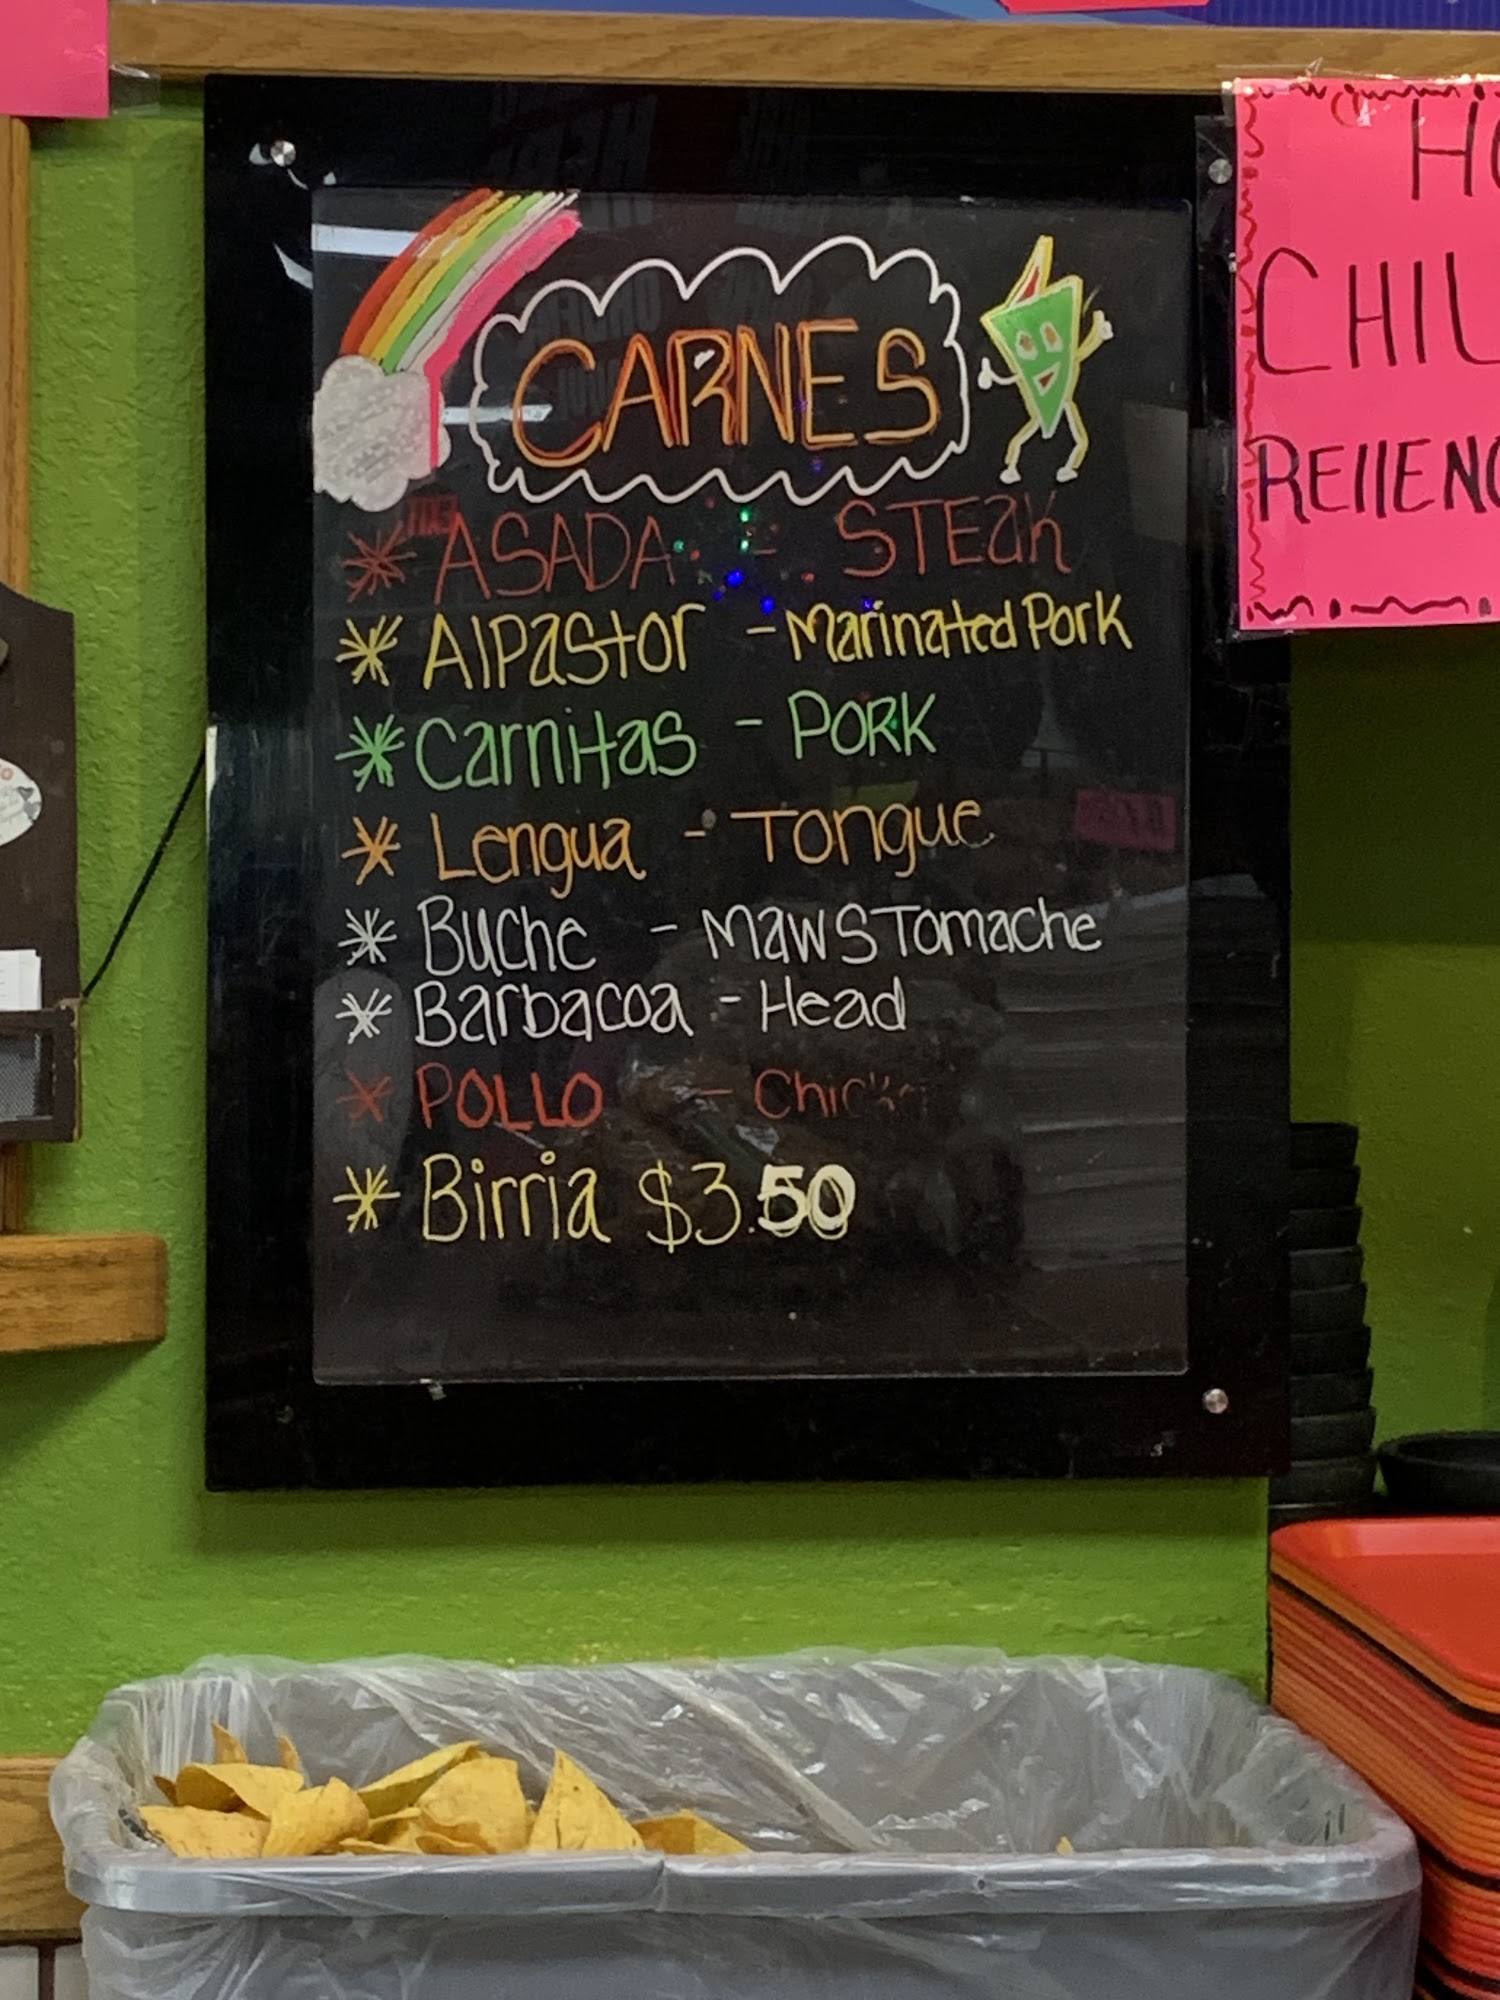 CARNES
* ASADA - STEAK
* AlPastor - Marinated Pork
* Carnitas - PORK
* Lengua - Tongue
* Buche - Maw STomache
* Barbacoa - Head
* POLLO - Chicken
* Birria $3.50
HO
CHIL
RELLENO